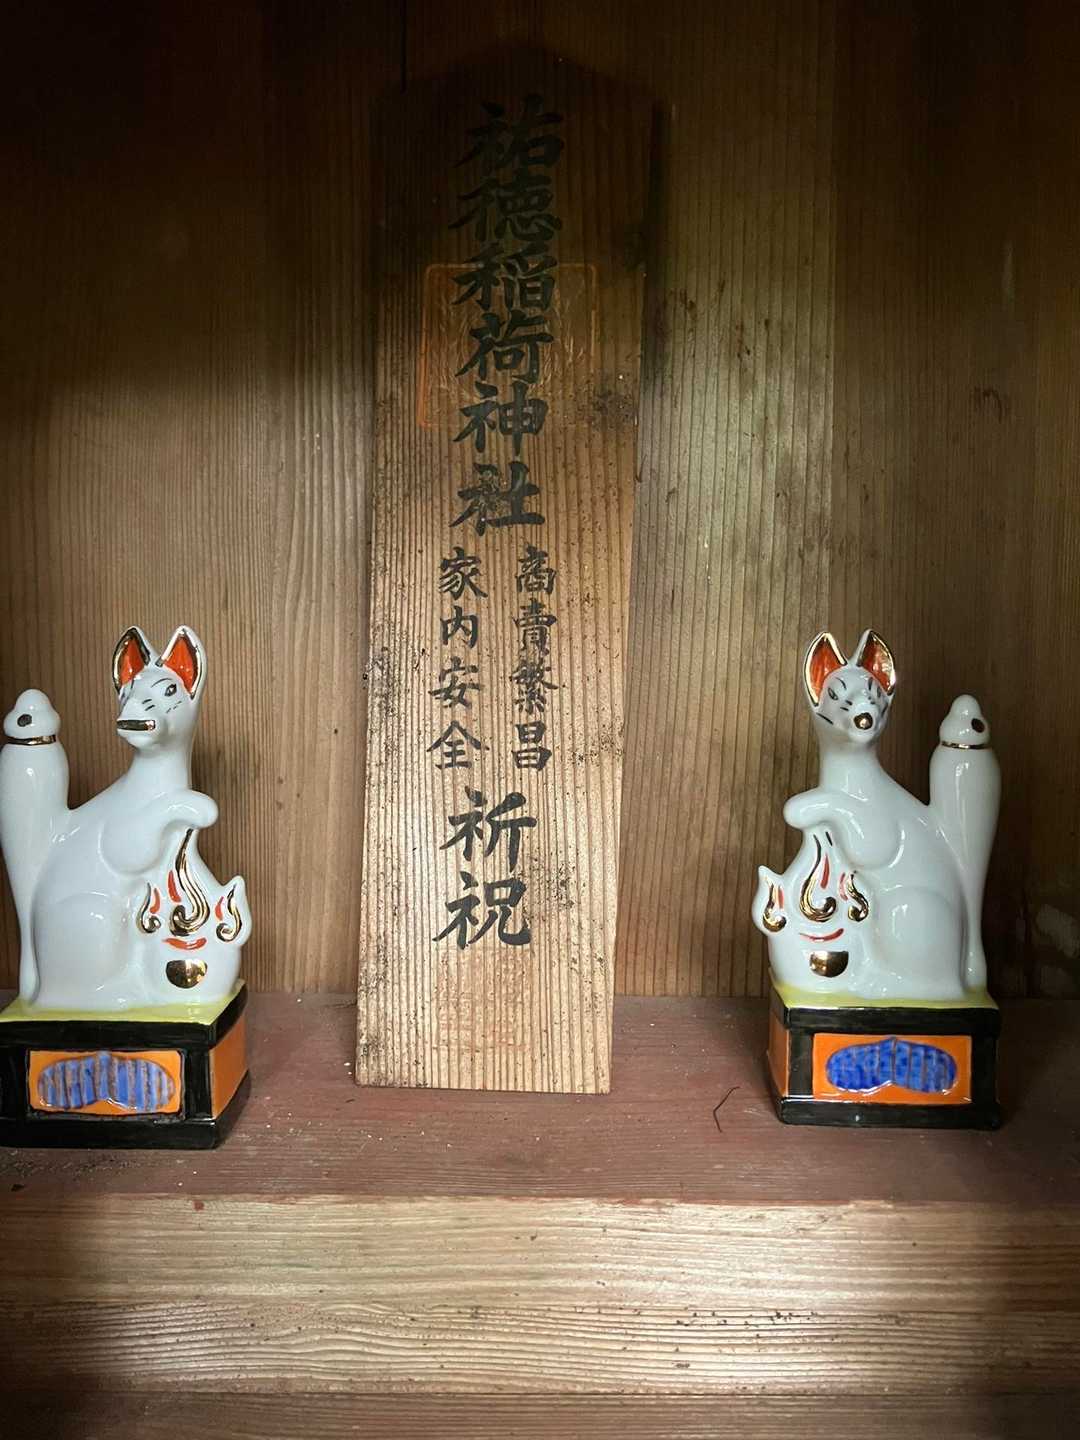 祐徳稲荷神社
商賣繁昌
家内安全
祈祝